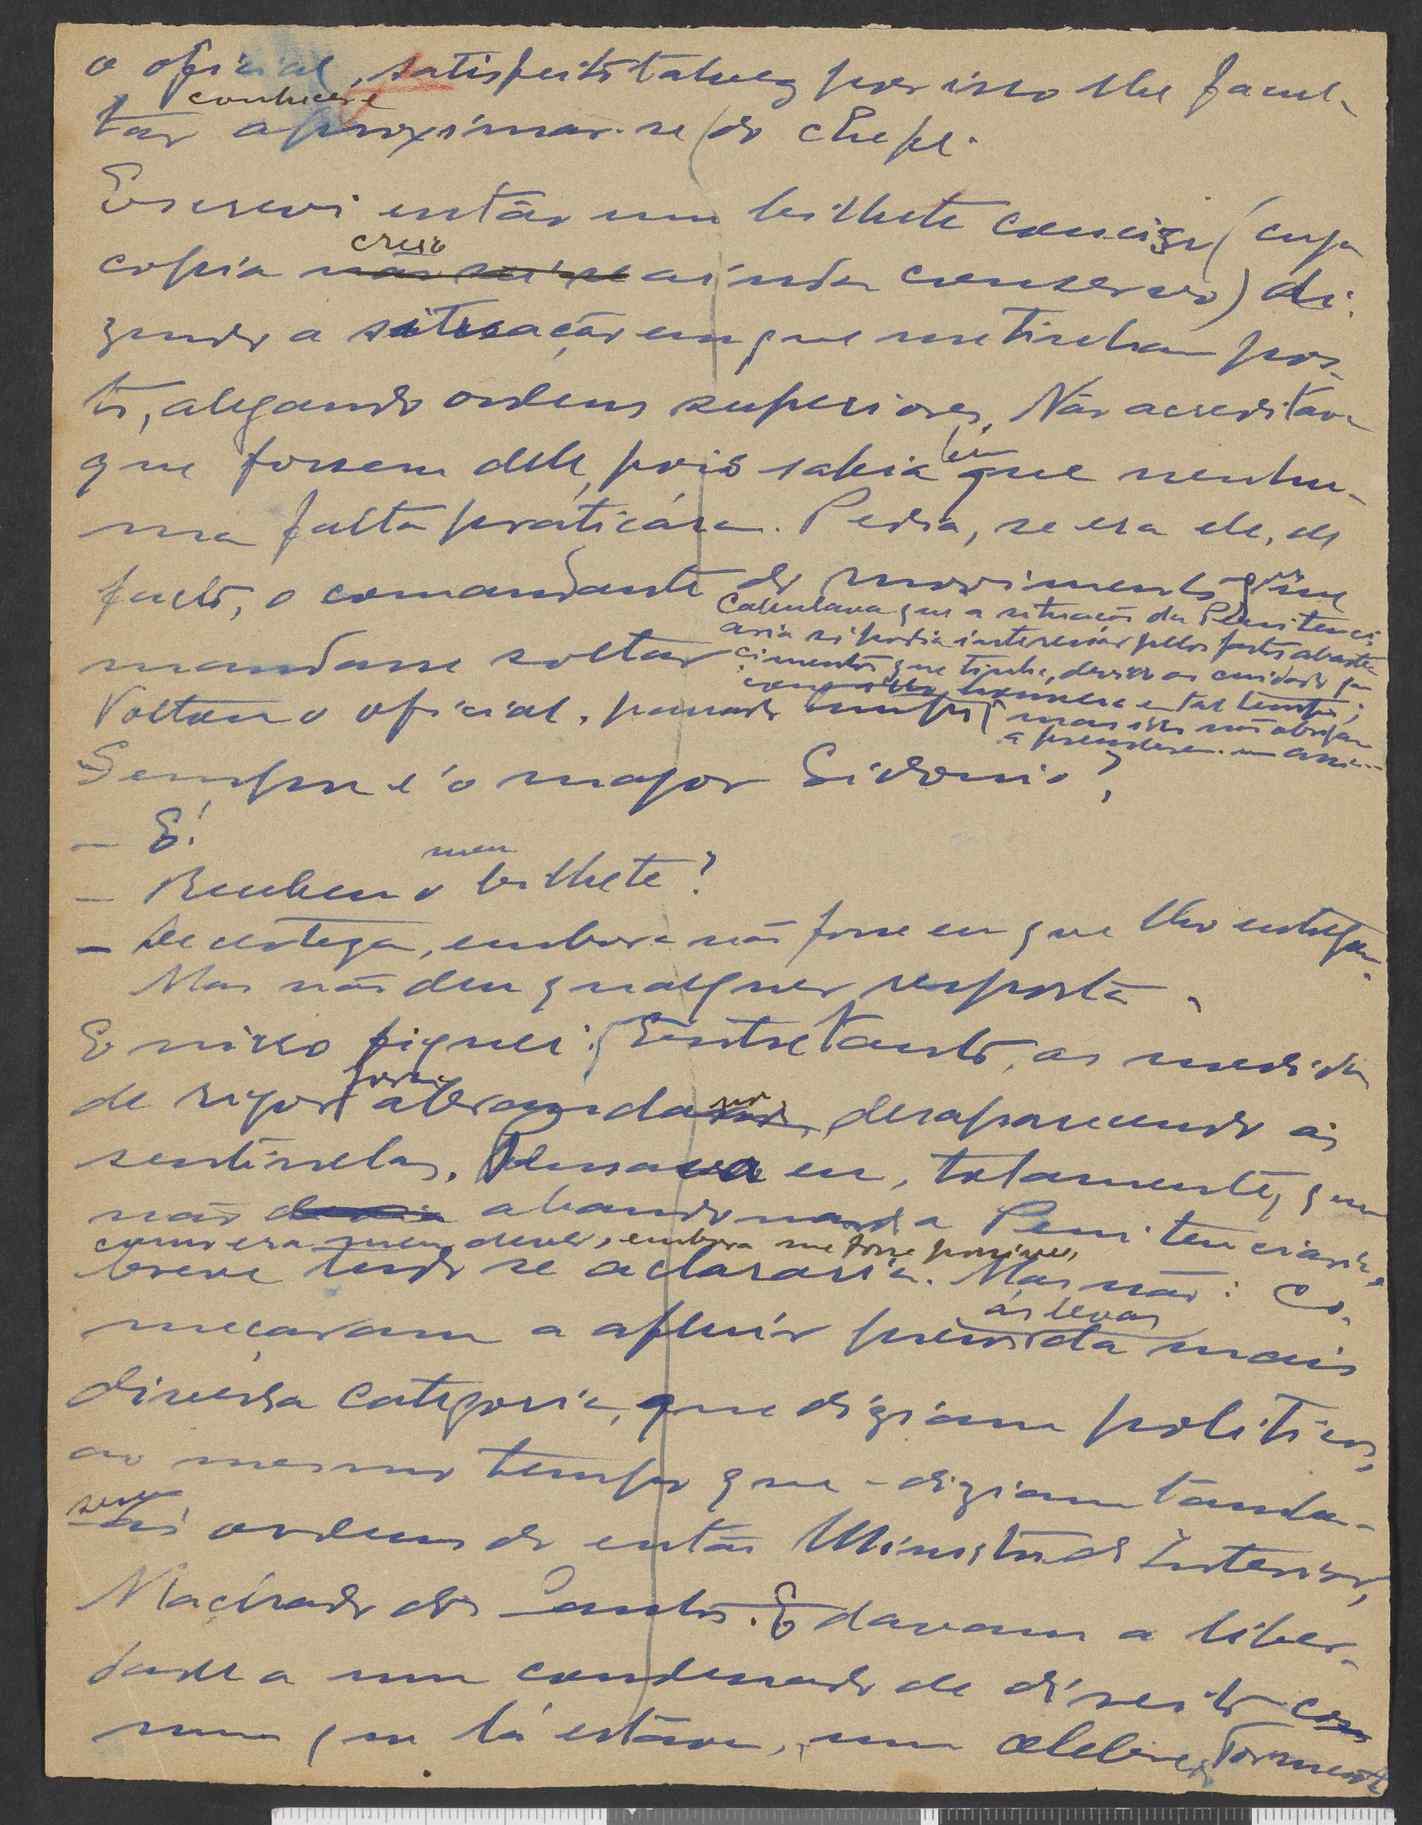 o oficial, satisfeito talvez por isso lhe facul-
conhecer e
tar aproximar-se do chefe.
Escrevi então um bilhete conciso (cuja
creio
copia não sei se ainda conservo) di-
zendo a situação em que me tinham pos-
to, alegando ordens superiores. Não acreditava
que fossem dele, pois sabia bem que nenhu-
ma falta praticára. Pedia, se era ele, de
facto, o comandante do movimento que me
mandasse soltar
Calculava que a situação da Penitenci-
aria só podia interessar pelos fartos abaste-
cimentos que tinha, devido ao cuidado que
houvera em tal tempo;
mas isso não obrigava
a prenderem-me assim...
Voltou o oficial, passado tempo
Sempre é o major Sidonio?
— É!
— Recebeu o meu bilhete?
— De certeza, embora não fosse eu que lho entregou.
Mas não deu qualquer resposta.
E nisso fiquei. Entretanto, as medidas
de rigor foram abrandando, desaparecendo as
sentinelas. Pensava eu, tolamente, que
não devia abandonar a Penitenciaria,
como era meu dever, embora me fosse possivel,
breve tudo se aclararia. Mas não: Co-
as levas
meçaram a afluir presos da mais
diversa categoria, que diziam politicos,
ao mesmo tempo que - diziam tambem
ordens do então Ministro do Interior,
Machado dos Santos. E davam a liber-
dade a um condenado de direito com
mum que lá estava, um celebre Tormenta